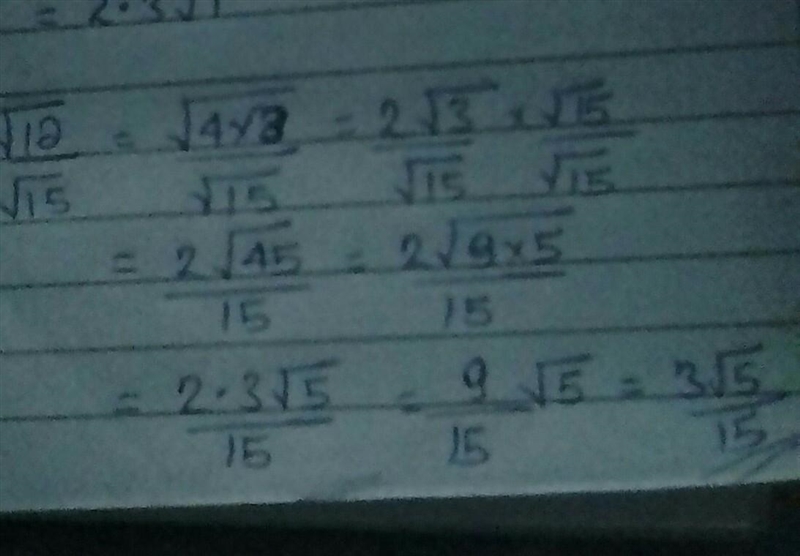 = 2·3√1
√12/√15 = √(4×3)/√15 = 2√3/√15 × √15/√15
= 2√45/15 = 2√(9×5)/15
= 2·3√5/15 = 9/15 √5 = 3√5/15